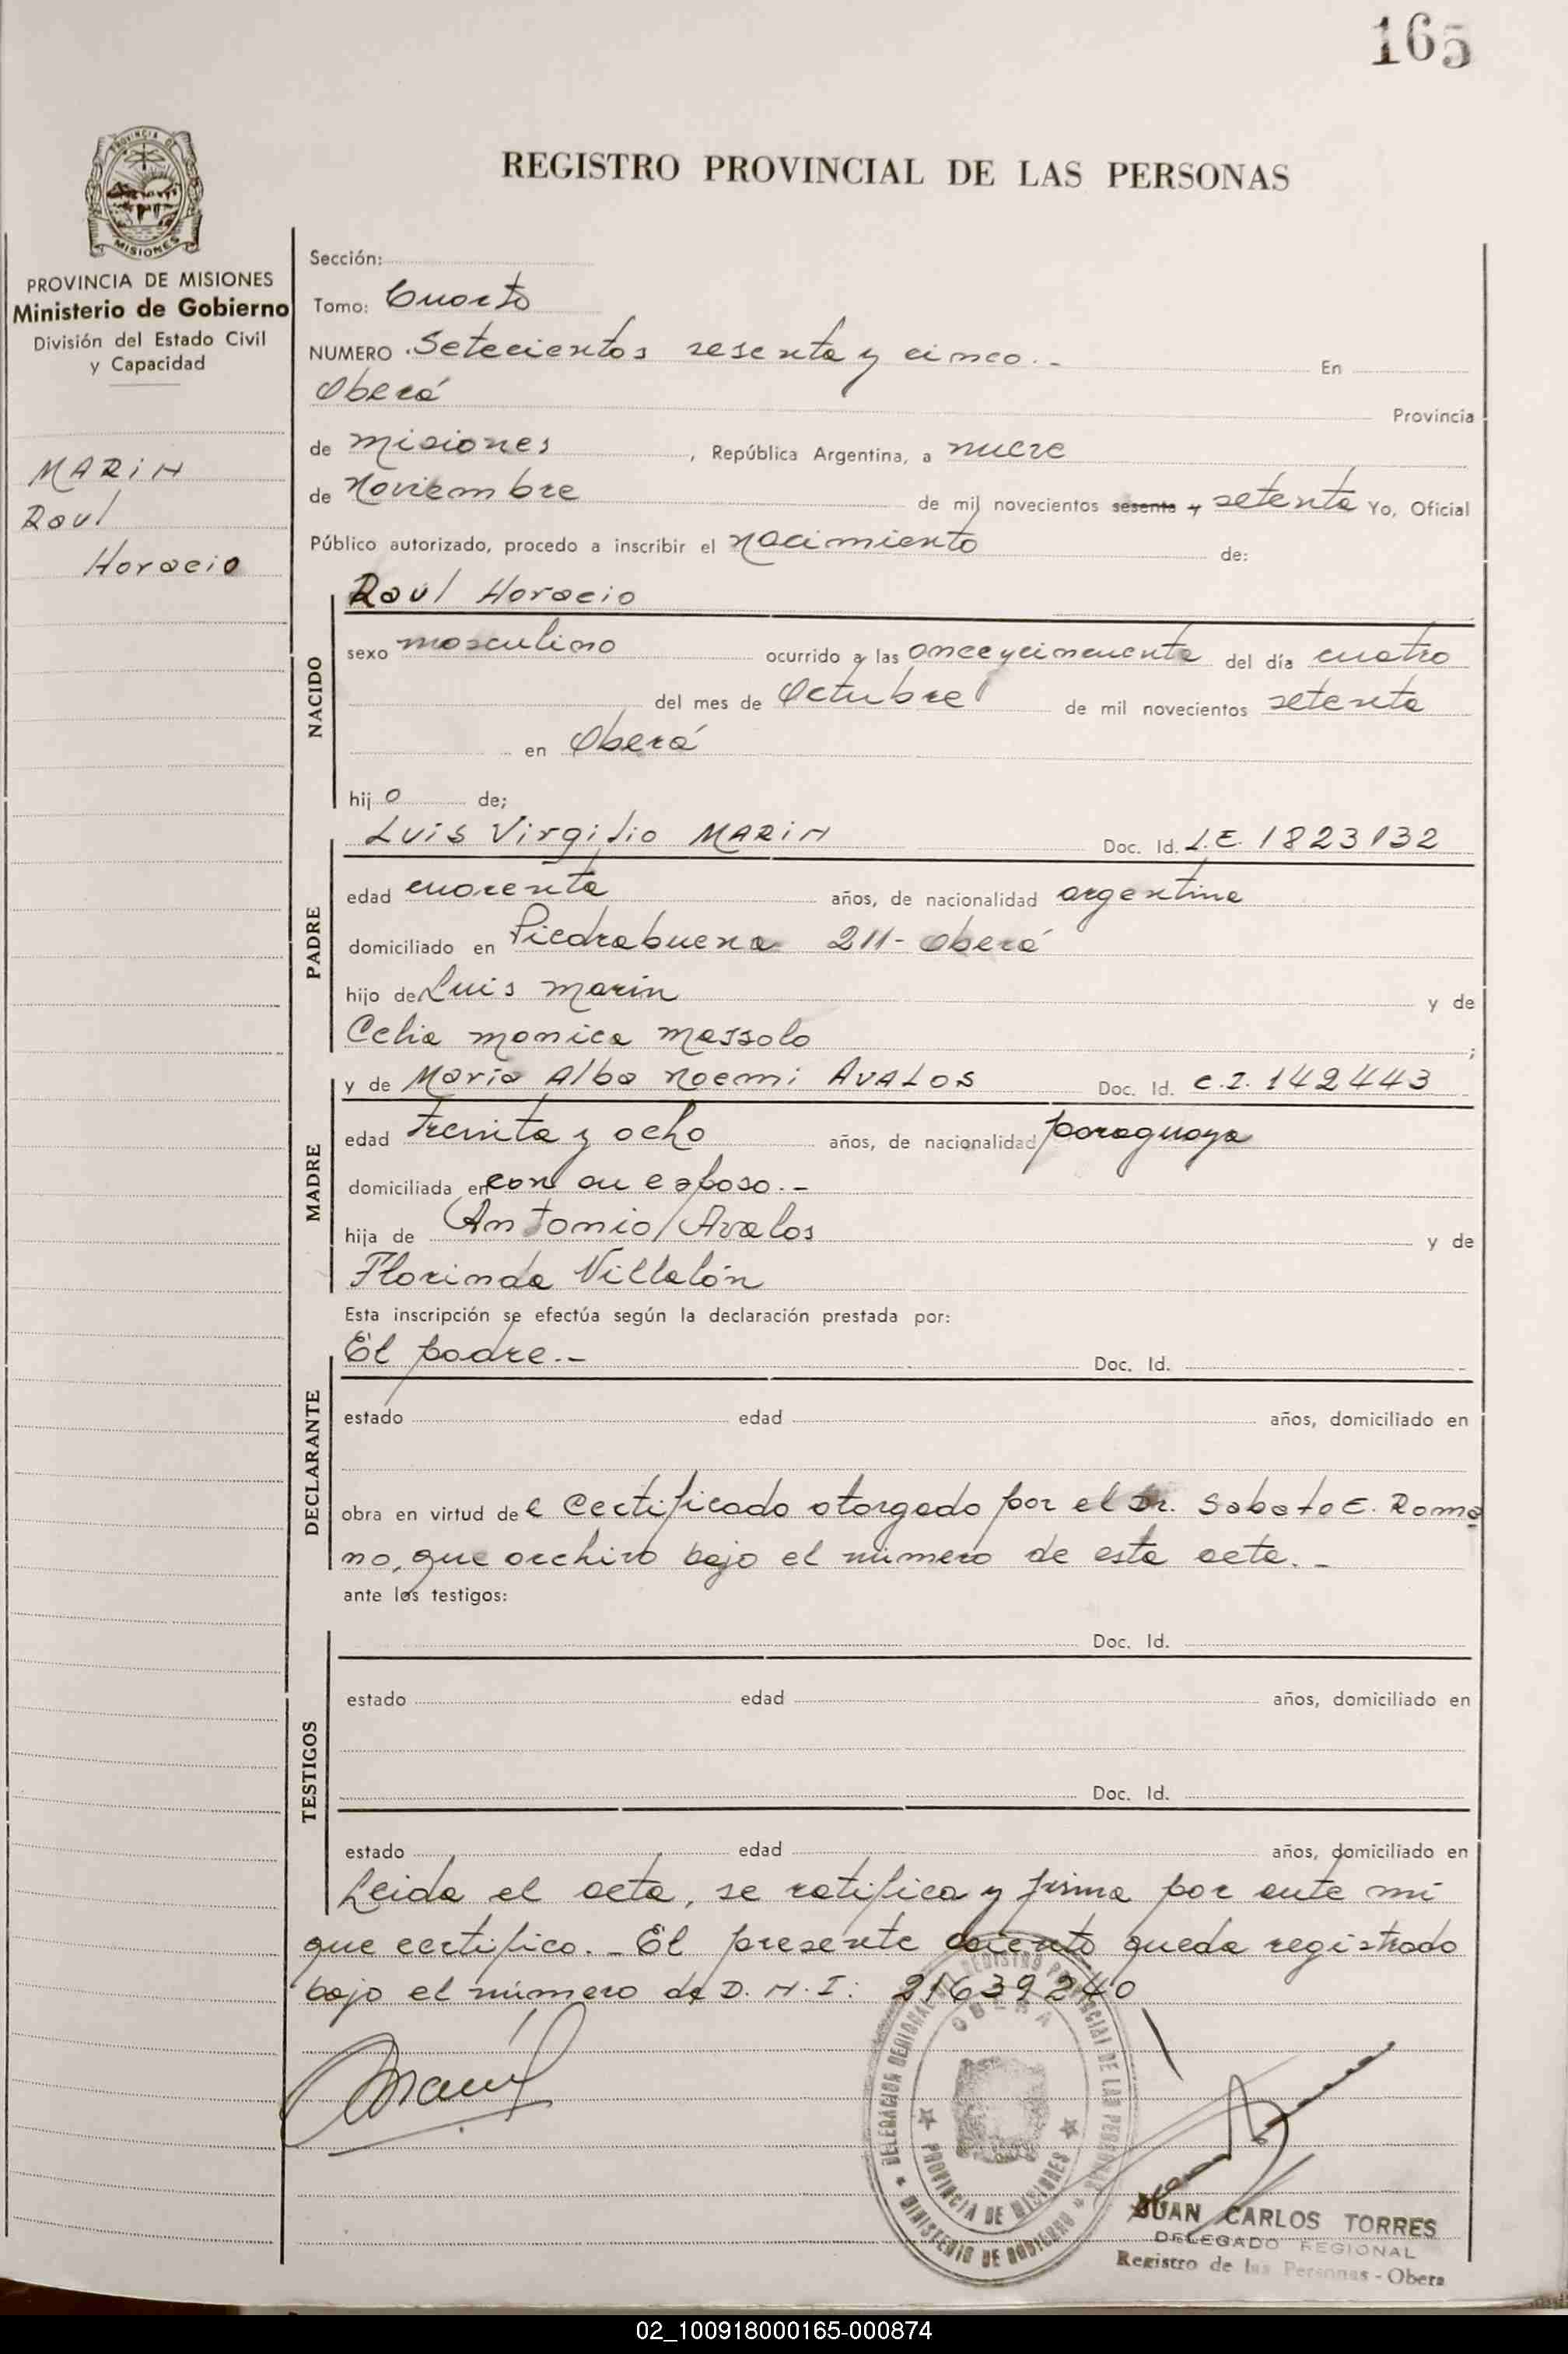 165
REGISTRO PROVINCIAL DE LAS PERSONAS
PROVINCIA DE
MISIONES
PROVINCIA DE MISIONES
Ministerio de Gobierno
División del Estado Civil
y Capacidad
MARIN
Raul
Horacio
Sección:
Tomo: Cuarto
NUMERO Setecientos sesenta y cinco.- En
Oberá Provincia
de Misiones, República Argentina, a nueve
de Noviembre de mil novecientos sesenta y setenta Yo, Oficial
Público autorizado, procedo a inscribir el nacimiento de:
NACIDO
Raul Horacio
sexo masculino ocurrido a las once y cincuenta del día cuatro
del mes de Octubre de mil novecientos setenta
en Oberá
hijo de;
PADRE
Luis Virgilio MARIN Doc. Id. L.E. 1823132
edad cuarenta años, de nacionalidad argentina
domiciliado en Piedrabuena 211- Oberá
hijo de Luis Marin y de
Celia Monica Massolo ;
MADRE
y de Maria Alba Noemi AVALOS Doc. Id. C.I. 142443
edad treinta y ocho años, de nacionalidad paraguaya
domiciliada en con su esposo.-
hija de Antonio Avalos y de
Florinda Villalón
Esta inscripción se efectúa según la declaración prestada por:
DECLARANTE
El padre.- Doc. Id.
estado edad años, domiciliado en
obra en virtud del Certificado otorgado por el Dr. Sabato E. Roma
no, que archivo bajo el número de esta acta.-
ante los testigos:
TESTIGOS
Doc. Id.
estado edad años, domiciliado en
Doc. Id.
estado edad años, domiciliado en
Leida el acta, se ratifica y firma por ante mi
que certifico.- El presente asiento queda registrado
bajo el número de D.N.I: 21639240
Marin
DELEGACION REGIONAL REGISTRO PROVINCIAL DE LAS PERSONAS
OBERA
PROVINCIA DE MISIONES
MINISTERIO DE GOBIERNO
JUAN CARLOS TORRES
DELEGADO REGIONAL
Registro de las Personas - Obera
02_100918000165-000874